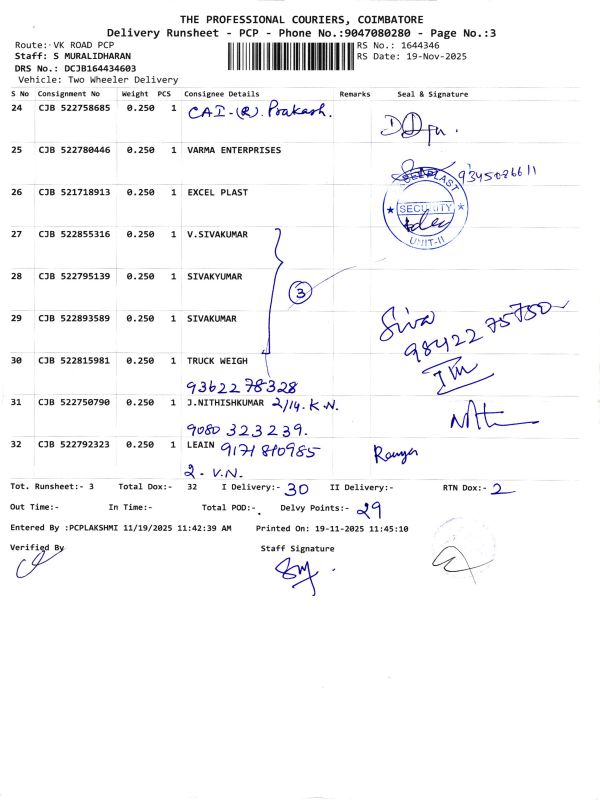 THE PROFESSIONAL COURIERS, COIMBATORE
Delivery Runsheet - PCP - Phone No.:9047080280 - Page No.:3
Route: VK ROAD PCP RS No.: 1644346
Staff: S MURALIDHARAN RS Date: 19-Nov-2025
DRS No.: DCJB164434603
Vehicle: Two Wheeler Delivery
S No Consignment No Weight PCS Consignee Details Remarks Seal & Signature
24 CJB 522758685 0.250 1 CAI-(R). Prakash.
25 CJB 522780446 0.250 1 VARMA ENTERPRISES
9345086611
26 CJB 521718913 0.250 1 EXCEL PLAST
PLAST
SECURITY
UNIT-II
27 CJB 522855316 0.250 1 V.SIVAKUMAR
28 CJB 522795139 0.250 1 SIVAKYUMAR
3
29 CJB 522893589 0.250 1 SIVAKUMAR Siva
98422 75750
30 CJB 522815981 0.250 1 TRUCK WEIGH
93622 78328
31 CJB 522750790 0.250 1 J.NITHISHKUMAR 2/14. K.N.
9080 323239.
32 CJB 522792323 0.250 1 LEAIN 9171 810985
2 - V.N.
Tot. Runsheet:- 3 Total Dox:- 32 I Delivery:- 30 II Delivery:- RTN Dox:- 2
Out Time:- In Time:- Total POD:- Delvy Points:- 29
Entered By :PCPLAKSHMI 11/19/2025 11:42:39 AM Printed On: 19-11-2025 11:45:10
Verified By Staff Signature